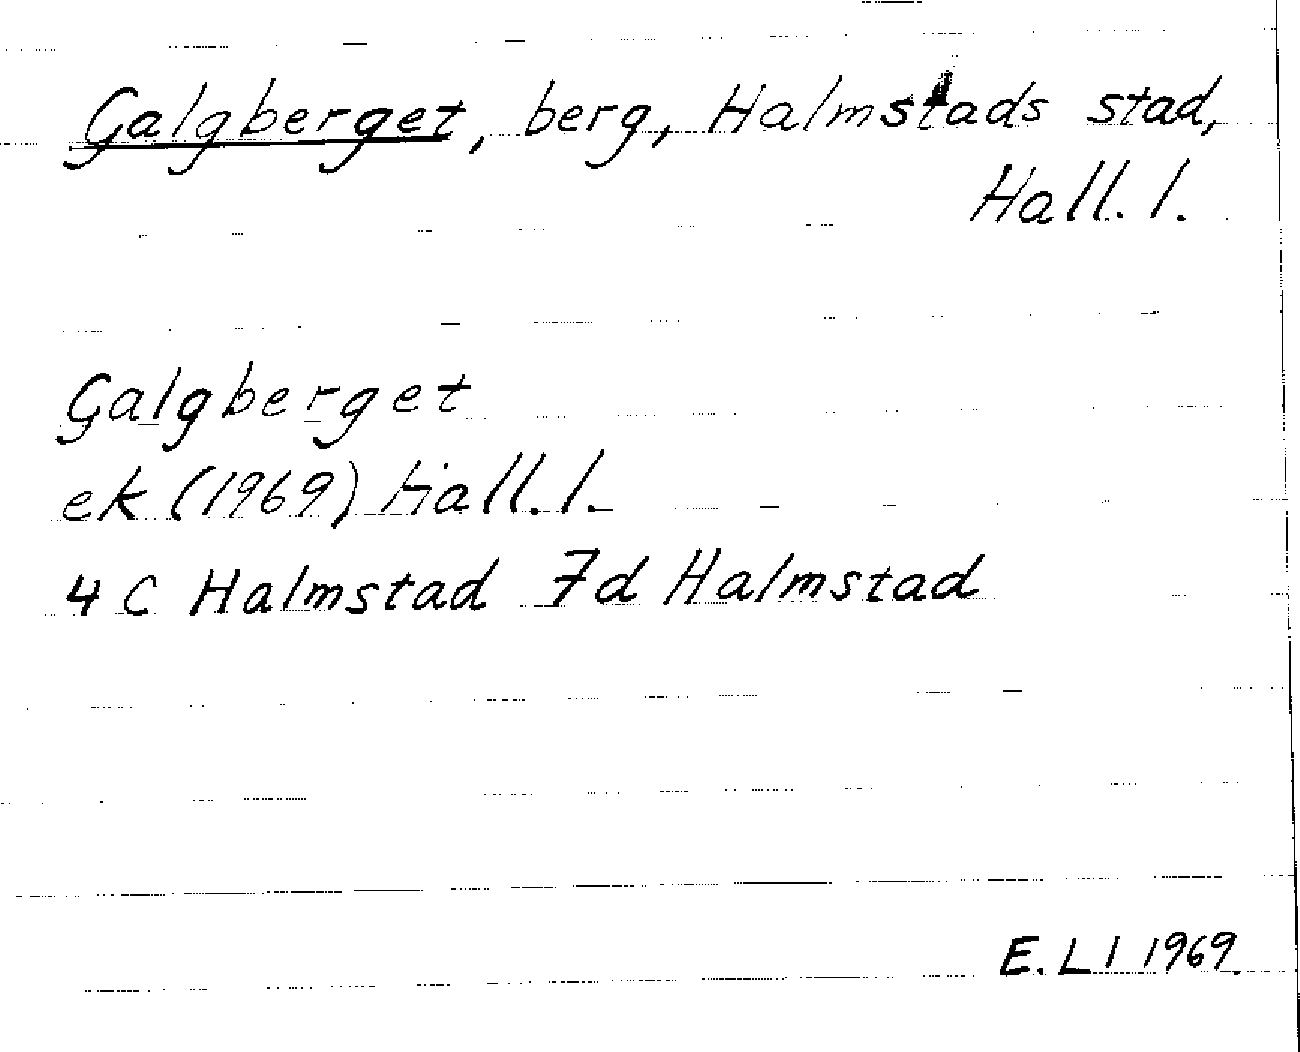 Galgberget, berg, Halmstads stad,
Hall. l.
Galgberget
ek (1969) Hall. l.
4 C Halmstad 7d Halmstad
E. L I 1969.